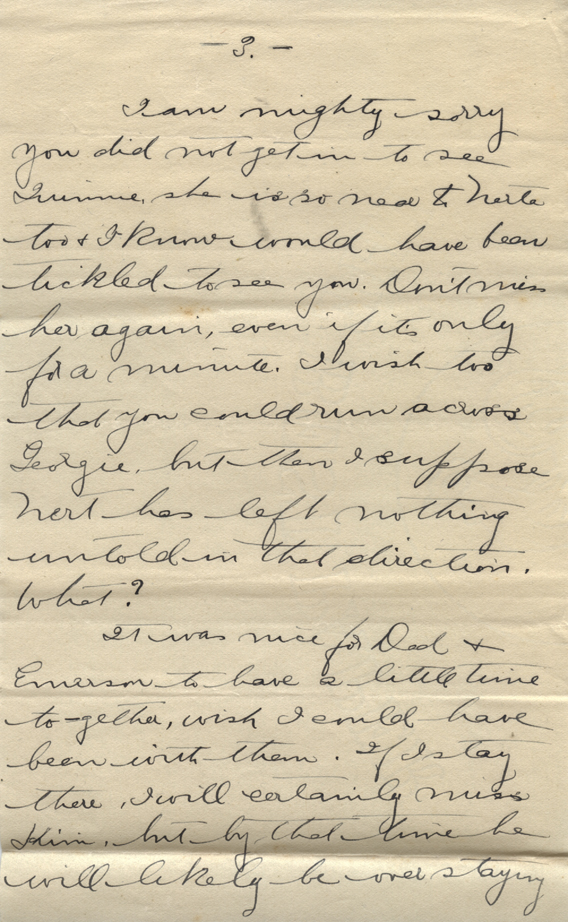 - 3. -
I am mighty sorry
you did not get in to see
she is so near to Nerta
too & I know would have been
tickled to see you. Don't miss
her again, even if its only
for a minute. I wish too
that you could run across
Georgie, but then I suppose
Nert has left nothing
untold in that direction.
What?
It was nice for Dad &
Emerson to have a little time
to-gether, wish I could have
been with them. If I stay
there, I will certainly miss
Him, but by that time he
will likely be over staying